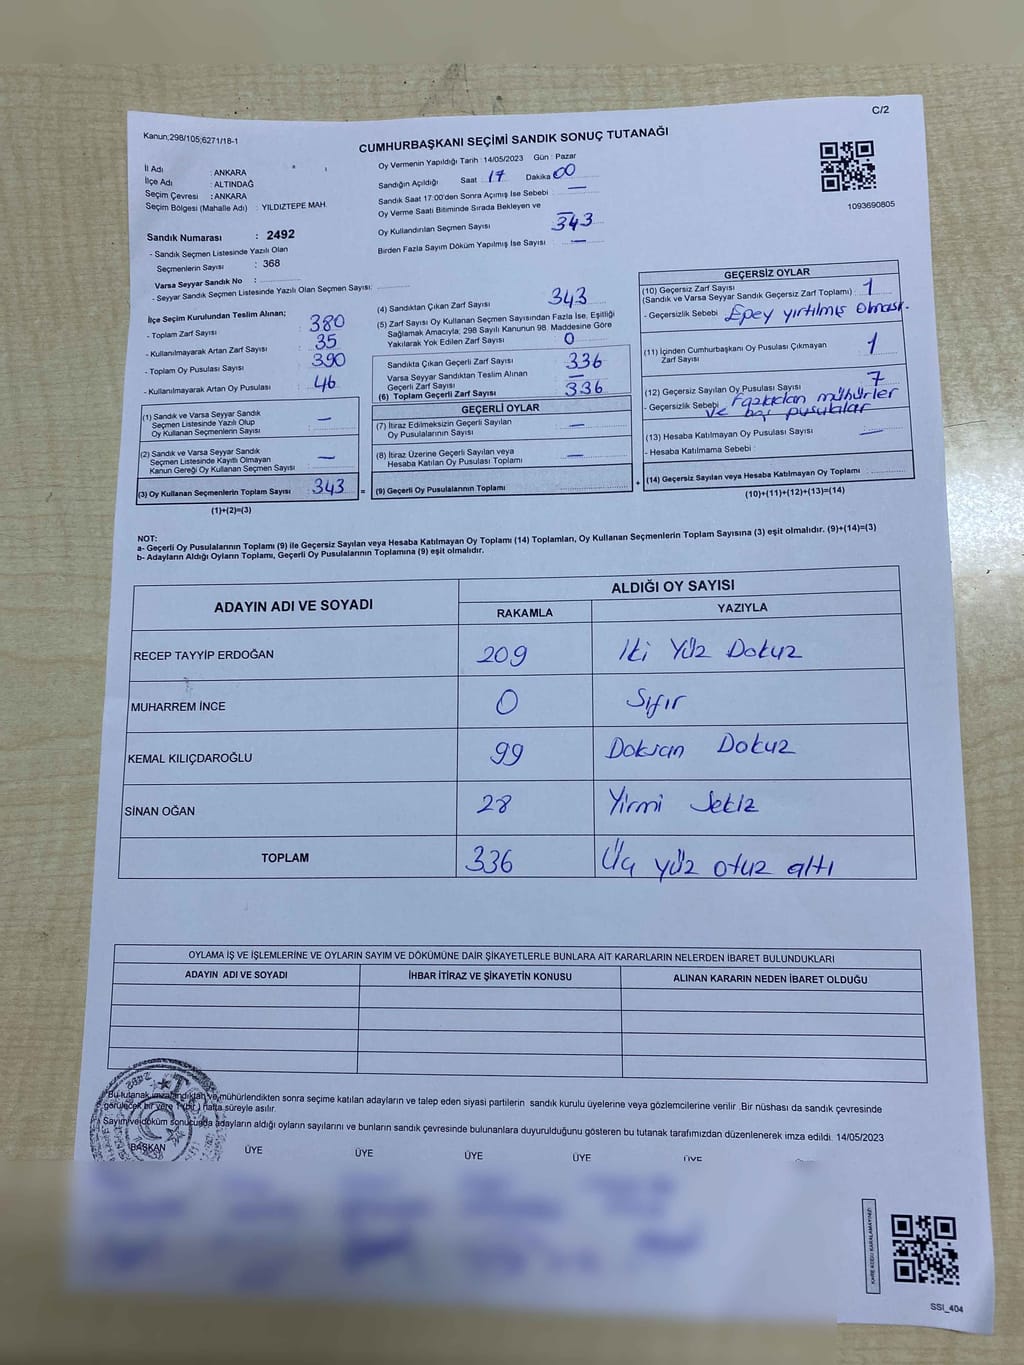 C/2
Kanun;298/105;6271/18-1
CUMHURBAŞKANI SEÇİMİ SANDIK SONUÇ TUTANAĞI
İl Adı : ANKARA
İlçe Adı : ALTINDAĞ
Seçim Çevresi : ANKARA
Seçim Bölgesi (Mahalle Adı) : YILDIZTEPE MAH.
Oy Vermenin Yapıldığı Tarih : 14/05/2023 Gün : Pazar
Sandığın Açıldığı Saat 17 Dakika 00
Sandık Saat 17:00'den Sonra Açılmış İse Sebebi —
Oy Verme Saati Bitiminde Sırada Bekleyen ve —
Oy Kullandırılan Seçmen Sayısı 343
Birden Fazla Sayım Döküm Yapılmış İse Sayısı —
1093690805
Sandık Numarası : 2492
- Sandık Seçmen Listesinde Yazılı Olan
Seçmenlerin Sayısı : 368
Varsa Seyyar Sandık No :
- Seyyar Sandık Seçmen Listesinde Yazılı Olan Seçmen Sayısı:
İlçe Seçim Kurulundan Teslim Alınan;
- Toplam Zarf Sayısı : 380
- Kullanılmayarak Artan Zarf Sayısı : 35
- Toplam Oy Pusulası Sayısı : 390
- Kullanılmayarak Artan Oy Pusulası : 46
(1) Sandık ve Varsa Seyyar Sandık
Seçmen Listesinde Yazılı Olup
Oy Kullanan Seçmenlerin Sayısı : —
(2) Sandık ve Varsa Seyyar Sandık
Seçmen Listesinde Kayıtlı Olmayan
Kanun Gereği Oy Kullanan Seçmen Sayısı : —
(3) Oy Kullanan Seçmenlerin Toplam Sayısı : 343 =
(1)+(2)=(3)
(4) Sandıktan Çıkan Zarf Sayısı 343
(5) Zarf Sayısı Oy Kullanan Seçmen Sayısından Fazla İse, Eşitliği
Sağlamak Amacıyla; 298 Sayılı Kanunun 98. Maddesine Göre
Yakılarak Yok Edilen Zarf Sayısı 0
Sandıkta Çıkan Geçerli Zarf Sayısı 336
Varsa Seyyar Sandıktan Teslim Alınan
Geçerli Zarf Sayısı —
(6) Toplam Geçerli Zarf Sayısı 336
GEÇERLİ OYLAR
(7) İtiraz Edilmeksizin Geçerli Sayılan
Oy Pusulalarının Sayısı : —
(8) İtiraz Üzerine Geçerli Sayılan veya
Hesaba Katılan Oy Pusulası Toplamı : —
(9) Geçerli Oy Pusulalarının Toplamı : +
GEÇERSİZ OYLAR
(10) Geçersiz Zarf Sayısı
(Sandık ve Varsa Seyyar Sandık Geçersiz Zarf Toplamı) : 1
- Geçersizlik Sebebi : Epey yırtılmış olması.
(11) İçinden Cumhurbaşkanı Oy Pusulası Çıkmayan
Zarf Sayısı 1
(12) Geçersiz Sayılan Oy Pusulası Sayısı 7
- Geçersizlik Sebebi : Fazladan mühürler
ve boş pusulalar
(13) Hesaba Katılmayan Oy Pusulası Sayısı : —
- Hesaba Katılmama Sebebi :
(14) Geçersiz Sayılan veya Hesaba Katılmayan Oy Toplamı :
(10)+(11)+(12)+(13)=(14)
NOT:
a- Geçerli Oy Pusulalarının Toplamı (9) ile Geçersiz Sayılan veya Hesaba Katılmayan Oy Toplamı (14) Toplamları, Oy Kullanan Seçmenlerin Toplam Sayısına (3) eşit olmalıdır. (9)+(14)=(3)
b- Adayların Aldığı Oyların Toplamı, Geçerli Oy Pusulalarının Toplamına (9) eşit olmalıdır.
ADAYIN ADI VE SOYADI
ALDIĞI OY SAYISI
RAKAMLA YAZIYLA
RECEP TAYYİP ERDOĞAN 209 İki Yüz Dokuz
MUHARREM İNCE 0 Sıfır
KEMAL KILIÇDAROĞLU 99 Doksan Dokuz
SİNAN OĞAN 28 Yirmi Sekiz
TOPLAM 336 Üç yüz otuz altı
OYLAMA İŞ VE İŞLEMLERİNE VE OYLARIN SAYIM VE DÖKÜMÜNE DAİR ŞİKAYETLERLE BUNLARA AİT KARARLARIN NELERDEN İBARET BULUNDUKLARI
ADAYIN ADI VE SOYADI İHBAR İTİRAZ VE ŞİKAYETİN KONUSU ALINAN KARARIN NEDEN İBARET OLDUĞU
Bu tutanak imzalandıktan ve mühürlendikten sonra seçime katılan adayların ve talep eden siyasi partilerin sandık kurulu üyelerine veya gözlemcilerine verilir. Bir nüshası da sandık çevresinde
görülecek bir yere 1 (bir) hafta süreyle asılır.
Sayım ve döküm sonucunda adayların aldığı oyların sayılarını ve bunların sandık çevresinde bulunanlara duyurulduğunu gösteren bu tutanak tarafımızdan düzenlenerek imza edildi. 14/05/2023
BAŞKAN ÜYE ÜYE ÜYE ÜYE ÜYE
2492
KARE KODU KARALAMAYINIZ!
SSI_404